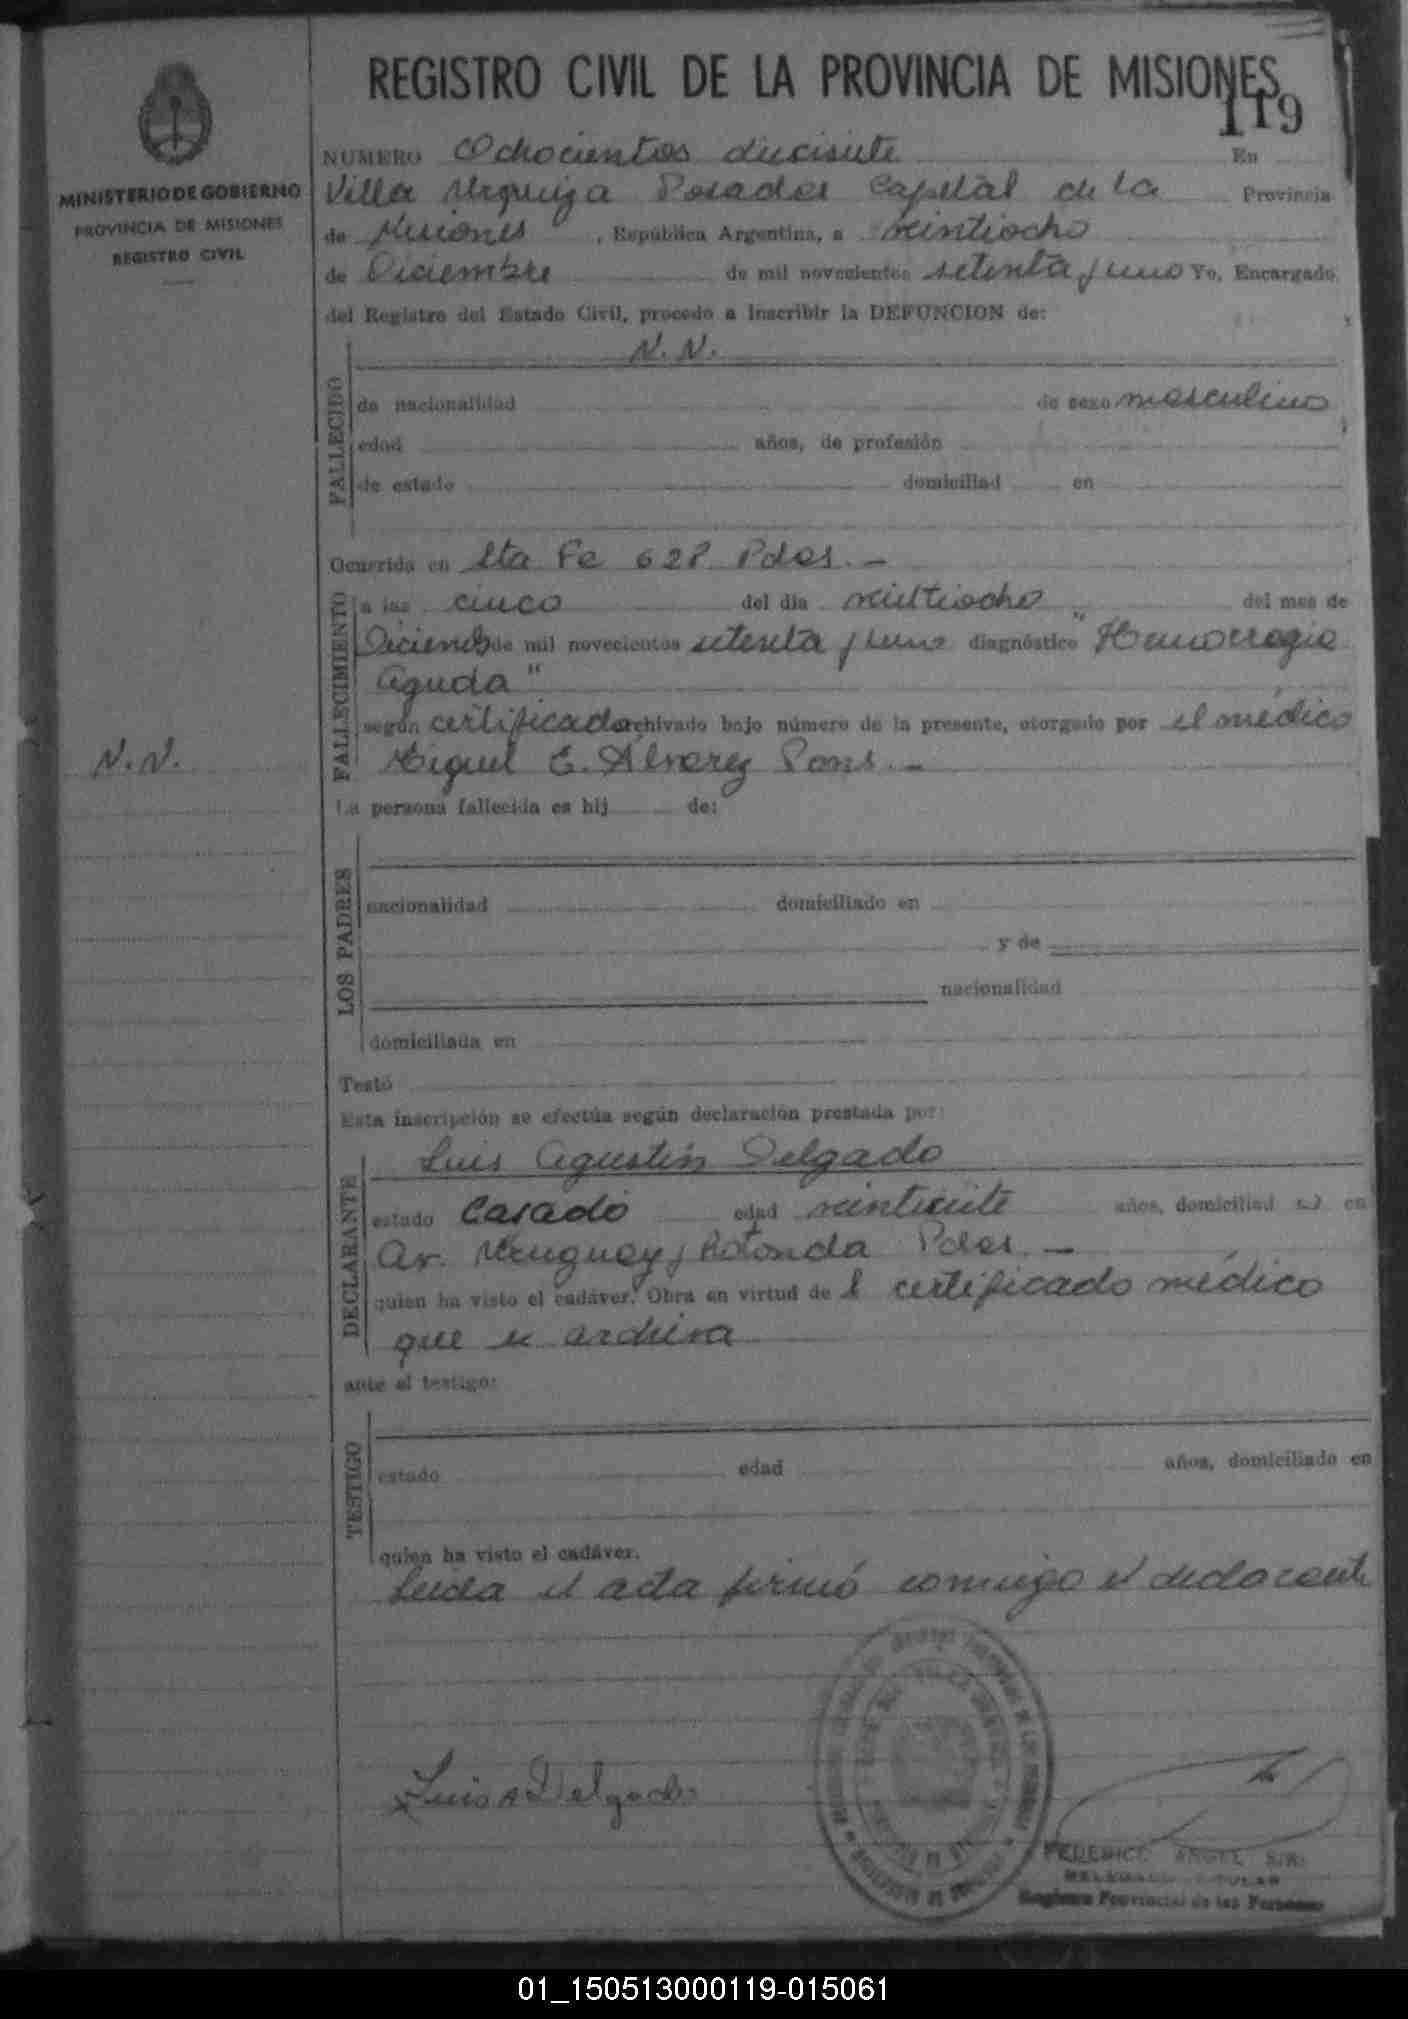 REGISTRO CIVIL DE LA PROVINCIA DE MISIONES
119
MINISTERIO DE GOBIERNO
PROVINCIA DE MISIONES
REGISTRO CIVIL
NUMERO Ochocientos diecisiete En
Villa Urquiza Posadas Capital de la Provincia
de Misiones, República Argentina, a veintiocho
de Diciembre de mil novecientos setenta y uno Yo, Encargado
del Registro del Estado Civil, procedo a inscribir la DEFUNCION de:
FALLECIDO
N. N.
de nacionalidad de sexo masculino
edad años, de profesión
de estado domiciliad en
Ocurrida en Sta Fe 628 Pdas. —
FALLECIMIENTO
a las cinco del día veintiocho del mes de
Diciemb de mil novecientos setenta y uno diagnóstico "Hemorragia
aguda"
según certificado archivado bajo número de la presente, otorgado por el médico
Miguel E. Alvarez Pons. —
N. N.
La persona fallecida es hij de:
LOS PADRES
nacionalidad domiciliado en
y de
nacionalidad
domiciliada en
Testó
Esta inscripción se efectúa según declaración prestada por:
DECLARANTE
Luis Agustín Delgado
estado Casado edad veintisiete años, domiciliad o en
Av. Uruguay y Rotonda Pdas. —
quien ha visto el cadáver. Obra en virtud de l certificado médico
que se archiva
ante el testigo:
TESTIGO
estado edad años, domiciliado en
quien ha visto el cadáver.
Leída el acta firmó conmigo el declarante
Luis A Delgado
FEDERICO ANGEL
DELEGADO TITULAR
Registro Provincial de las Personas
01_150513000119-015061